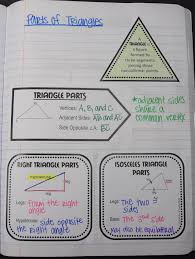 Parts of Triangles
TRIANGLE
a figure
formed by
three segments
joining three
noncollinear points
TRIANGLE PARTS
Vertices: A, B, and C
Adjacent Sides: AB and AC
Side Opposite ∠A: BC
*adjacent sides
share a
common vertex
RIGHT TRIANGLE PARTS
hypotenuse
Legs: form the right
angle
Hypotenuse: sides opposite
the right angle
ISOSCELES TRIANGLE
PARTS
Legs: The two ≅
sides
Base: The 3rd side
*can also be equilateral